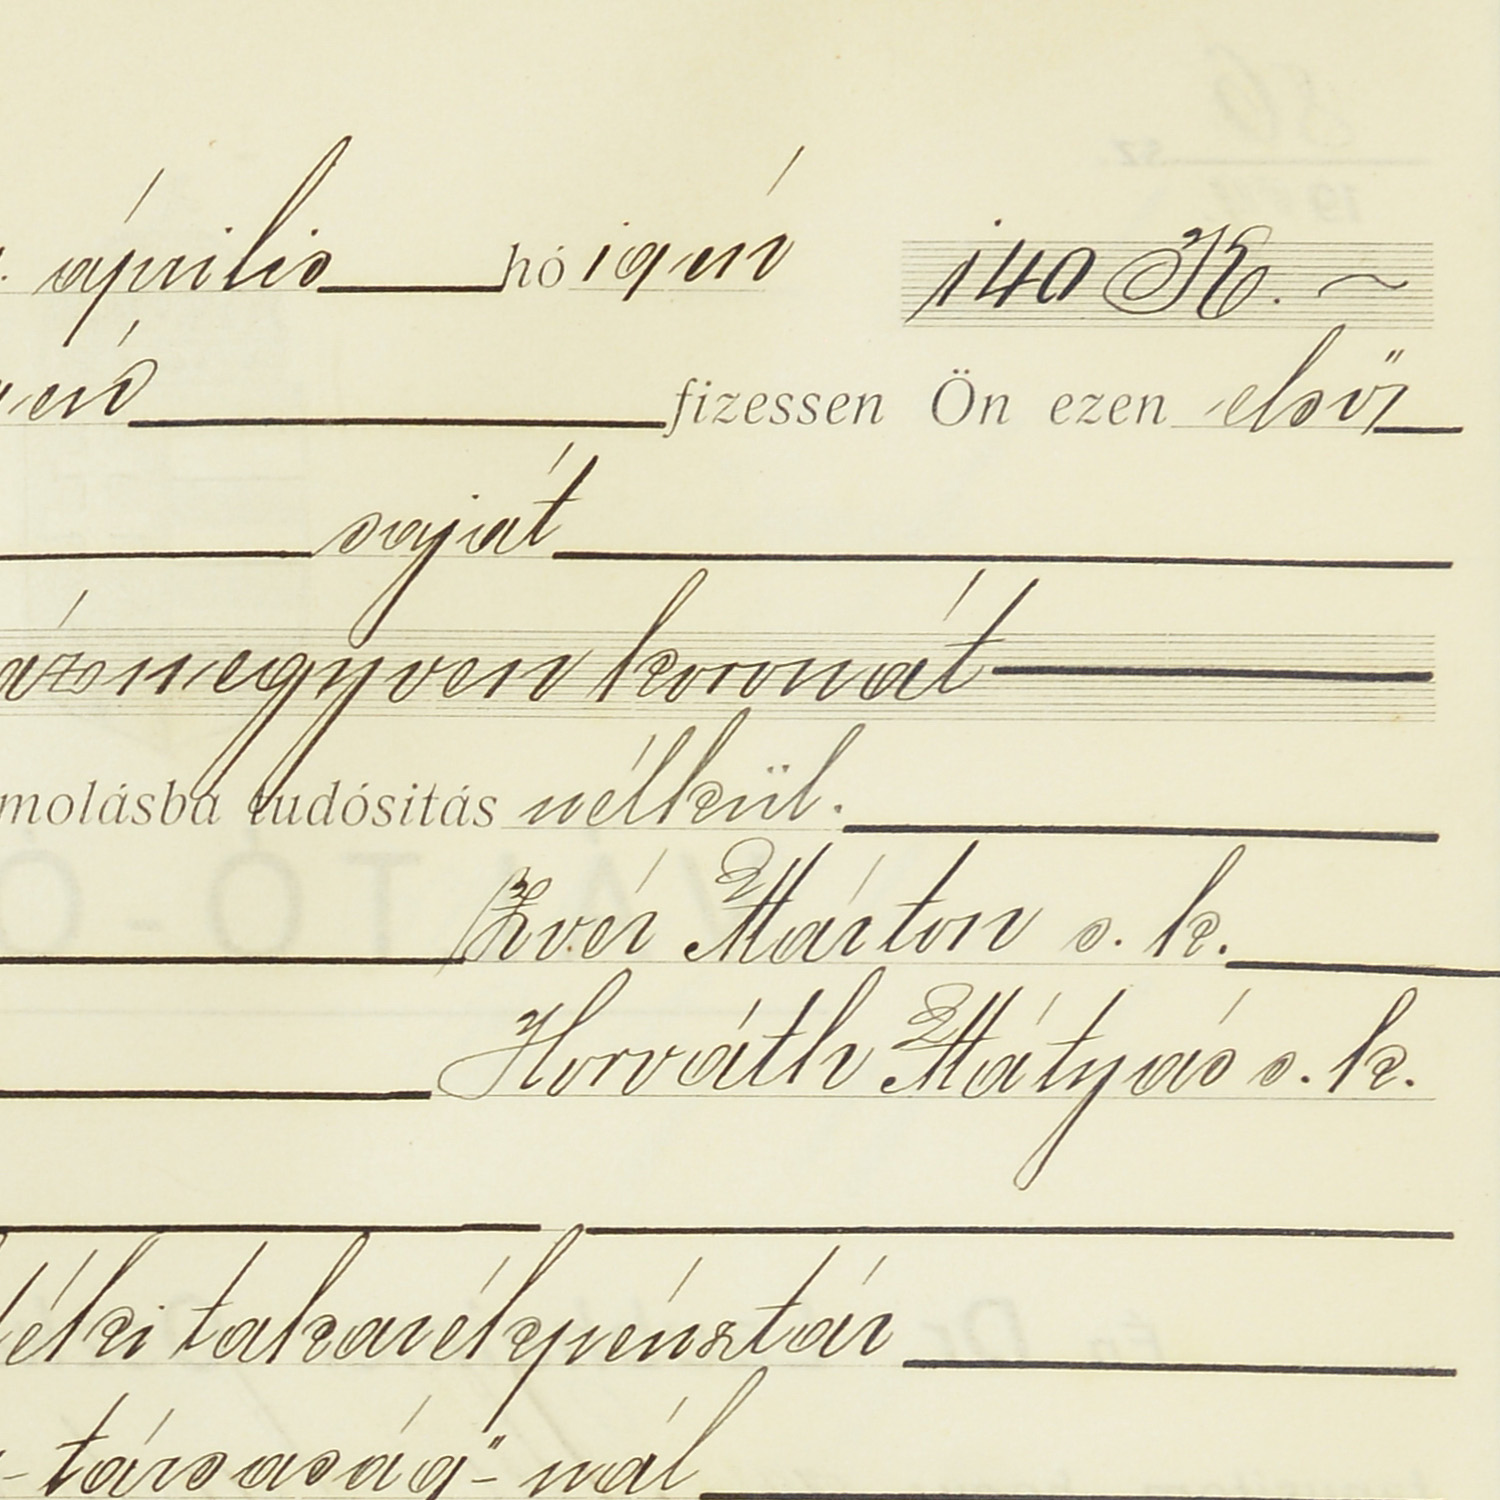 április hó 19 én 140 K. ~
én fizessen Ön ezen első
saját
száznegyven koronát
molásba tudósitás nélkül.
Zvér Márton s. k.
Horváth Mátyás s. k.
déki takarékpénztár
-társaság"-nál